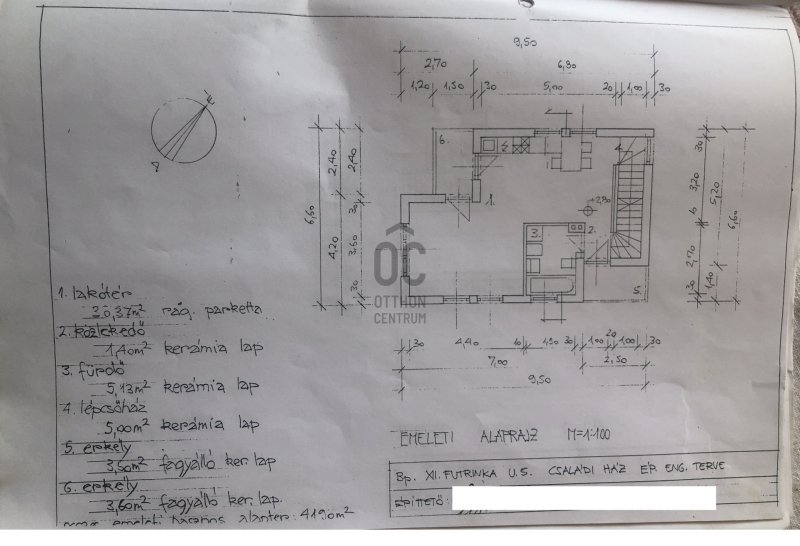 9,50
2,70 6,80
1,20 1,50 30 5,00 20 1,00 30
6,60
2,40 2,40
4,20 30 3,60 30
6.
1.
4.
+2,80
3
2.
5.
30 3,20 5,20 6,60
10 2,70 1,40 30
30 4,40 10 1,90 30 1,00 20 1,00 30
7,00 2,50
9,50
É
D
OC
OTTHON
CENTRUM
1. lakótér
30,37m² rag. parketta
2. közlekedő
1,40m² kerámia lap
3. fürdő
5,13m² kerámia lap
4. lépcsőház
5,00m² kerámia lap
5. erkély
3,50m² fagyálló ker. lap
6. erkély
3,60m² fagyálló ker. lap.
emeleti hasznos alapter.: 41,90m²
EMELETI ALAPRAJZ M=1:100
Bp. XII. FUTRINKA U. 5. CSALÁDI HÁZ ÉP. ENG. TERVE
ÉPÍTTETŐ: